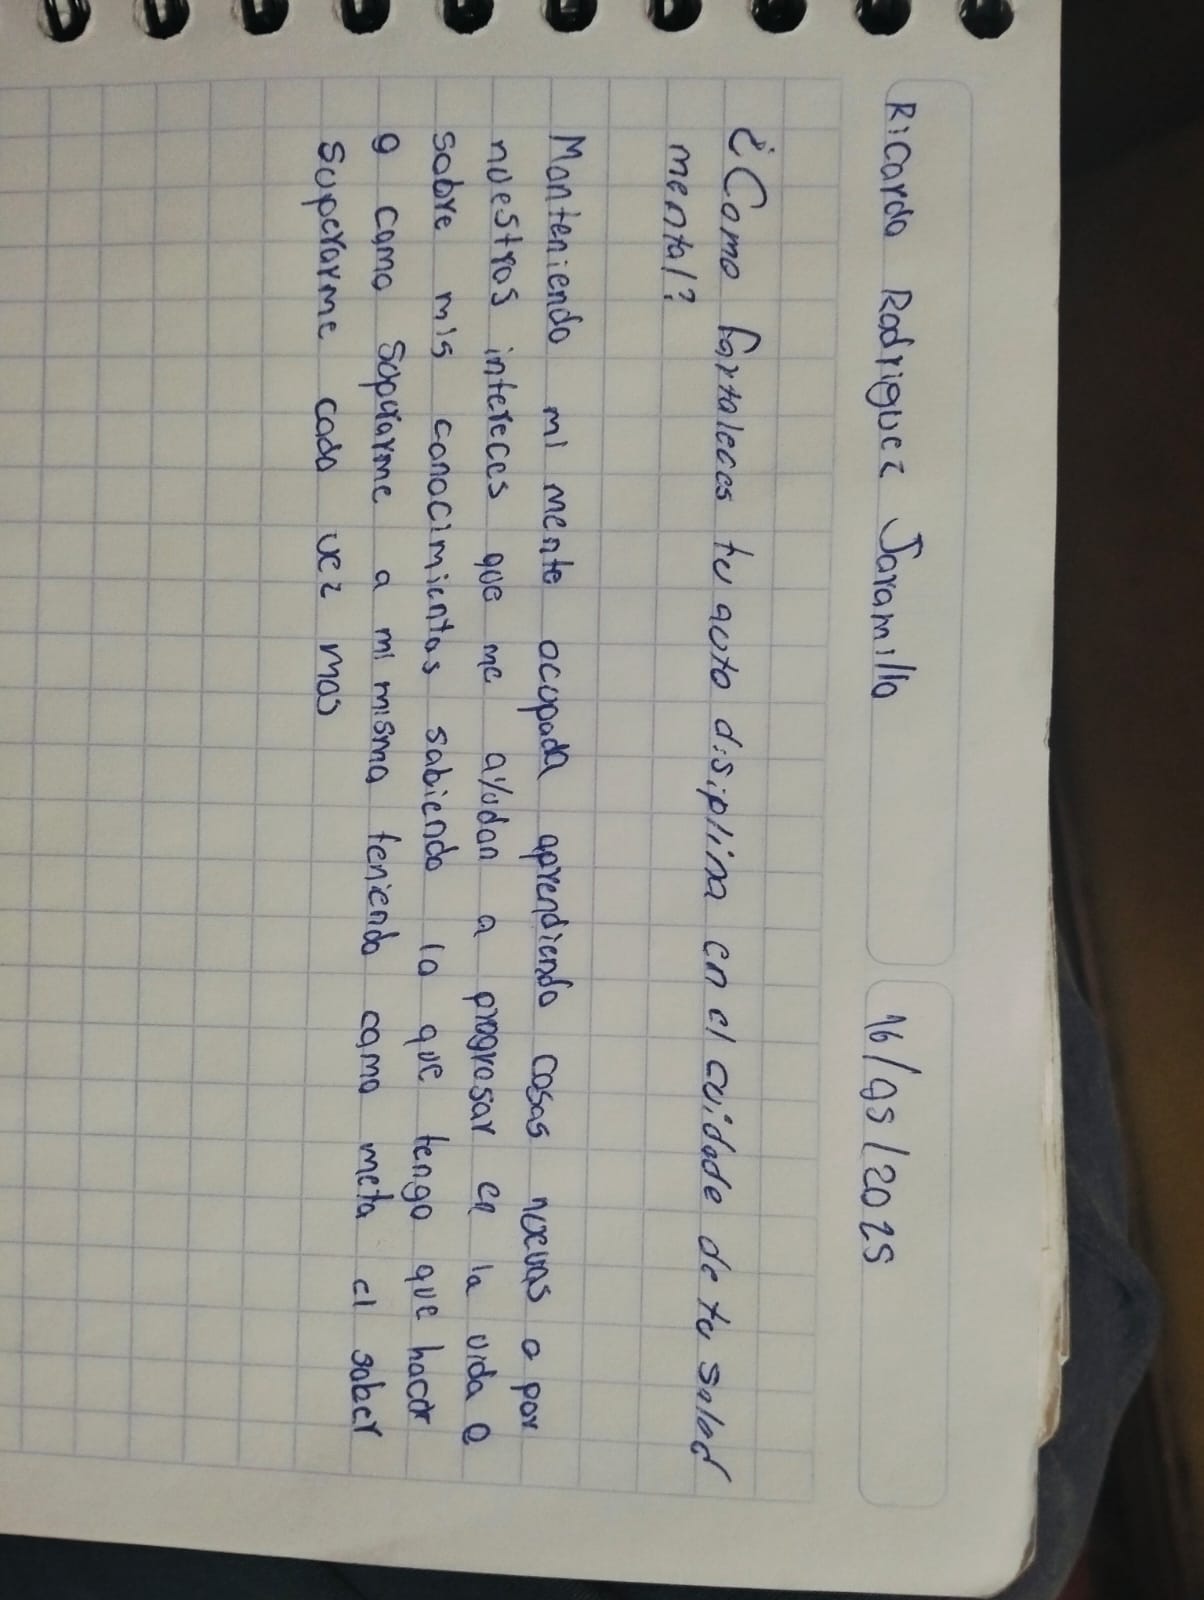 Ricardo Rodriguez Jaramillo 16/05/2025
¿Como fortaleces tu auto disiplina en el cuidado de tu salud
mental?
Manteniendo mi mente ocupada aprendiendo cosas nuevas o por
nuestros intereces que me ayudan a progresar en la vida o
sobre mis conocimientos sabiendo lo que tengo que hacer
o como superarme a mi mismo teniendo como meta el saber
superarme cada vez mas